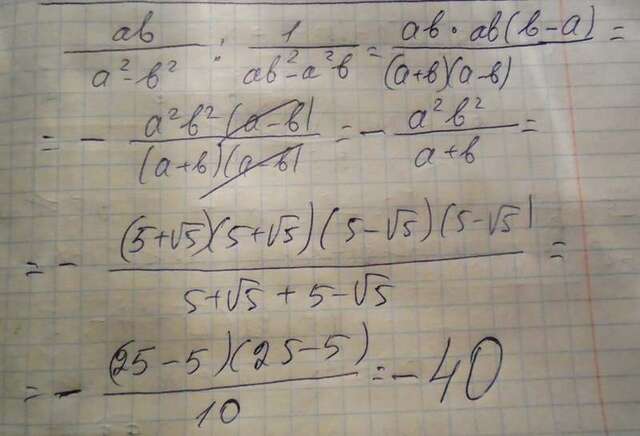 ab/(a² - b²) : 1/(ab² - a²b) = ab · ab(b - a)/((a+b)(a-b)) =
= - a²b²(a-b)/((a+b)(a-b)) = - a²b²/(a+b) =
= - (5+√5)(5+√5)(5-√5)(5-√5)/(5+√5 + 5-√5) =
= - (25-5)(25-5)/10 = -40